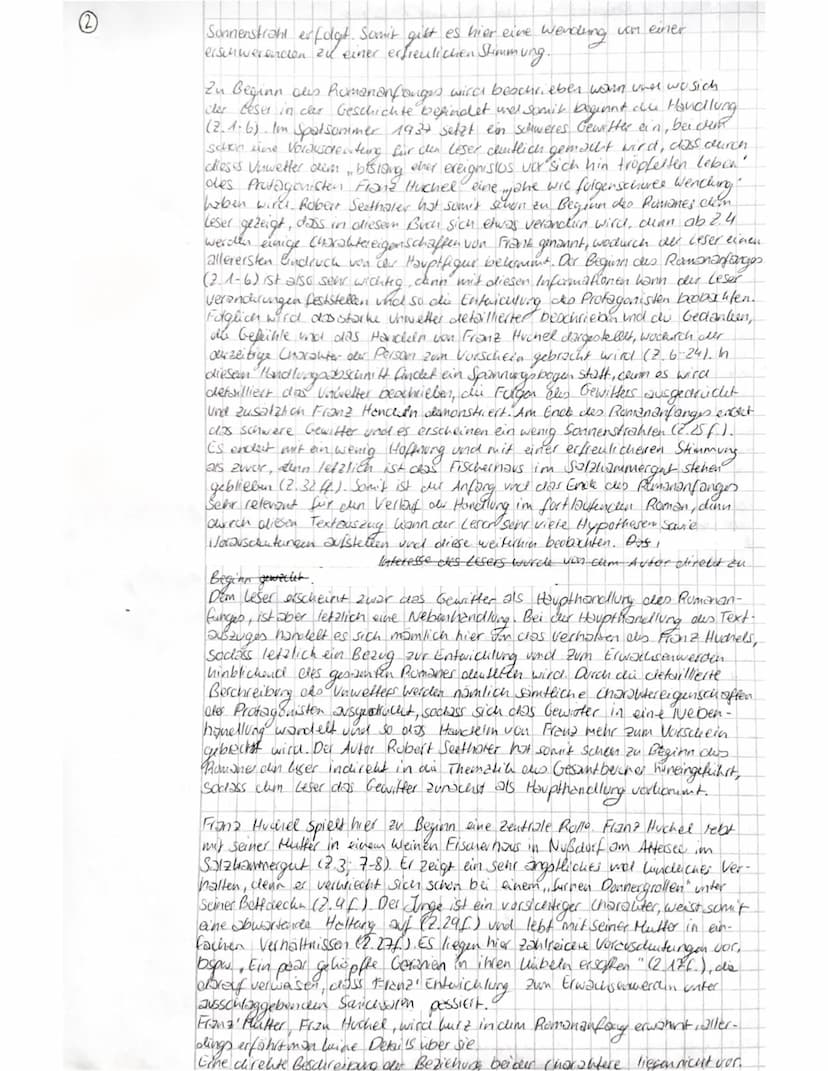 2
Sonnenstrahl erfolgt. Somit gibt es hier eine Wendung von einer
erschwerenden zu einer erfreulichen Stimmung.
Zu Beginn des Romananfanges wird beschrieben wann und wo sich
der Leser in der Geschichte befindet und somit beginnt die Handlung
(Z.1-6). Im Spätsommer 1937 setzt ein schweres Gewitter ein, bei dem
schon eine Vorausdeutung für den Leser deutlich gemacht wird, dass durch
dieses Unwetter dem „bislang eher ereignislos vor sich hin tröpfelten Leben"
des Protagonisten Franz Huchel eine „jähe wie folgenschwere Wendung"
haben wird. Robert Seethaler hat somit schon zu Beginn des Romanes dem
Leser gezeigt, dass in diesem Buch sich etwas verändern wird, denn ab Z.4
werden einige Charaktereigenschaften von Franz genannt, wodurch der Leser einen
allerersten Eindruck von der Hauptfigur bekommt. Der Beginn des Romananfanges
(Z.1-6) ist also sehr wichtig, denn mit diesen Informationen kann der Leser
Veränderungen feststellen und so die Entwicklung des Protagonisten beobachten.
Folglich wird das starke Unwetter detaillierter beschrieben und die Gedanken,
die Gefühle und das Handeln von Franz Huchel dargestellt, wodurch der
derzeitige Charakter der Person zum Vorschein gebracht wird (Z.6-24). In
diesem Handlungsabschnitt findet ein Spannungsbogen statt, denn es wird
detailliert das Unwetter beschrieben, die Folgen des Gewitters ausgedrückt
und zusätzlich Franz Handeln demonstriert. Am Ende des Romananfanges endet
das schwere Gewitter und es erscheinen ein wenig Sonnenstrahlen (Z.25f.).
Es endet mit ein wenig Hoffnung und mit einer erfreulicheren Stimmung
als zuvor, denn letzlich ist das Fischerhaus im Salzkammergut stehen
geblieben (Z.32f.). Somit ist der Anfang und das Ende des Romananfanges
sehr relevant für den Verlauf der Handlung im fortlaufenden Roman, denn
durch diesen Textauszug kann der Leser sehr viele Hypothesen sowie
Vorausdeutungen aufstellen und diese weiterhin beobachten. Das
Interesse des Lesers wurde von dem Autor direkt zu
Beginn geweckt.
Dem Leser erscheint zwar das Gewitter als Haupthandlung des Romanan-
fanges, ist aber letzlich eine Nebenhandlung. Bei der Haupthandlung des Text-
auszuges handelt es sich nämlich hier um das Verhalten des Franz Huchels,
sodass letzlich ein Bezug zur Entwicklung und zum Erwachsenwerden
hinblickend des gesamten Romanes deutlich wird. Durch die detaillierte
Beschreibung des Unwetters werden nämlich sämtliche Charaktereigenschaften
des Protagonisten ausgedrückt, sodass sich das Gewitter in eine Neben-
handlung wandelt und so das Handeln von Franz mehr zum Vorschein
gebracht wird. Der Autor Robert Seethaler hat somit schon zu Beginn des
Romanes den Leser indirekt in die Thematik des Gesamtbuches hineingeführt,
sodass dem Leser das Gewitter zunächst als Haupthandlung vorkommt.
Franz Huchel spielt hier zu Beginn eine zentrale Rolle. Franz Huchel lebt
mit seiner Mutter in einem kleinen Fischerhaus in Nußdorf am Attersee im
Salzkammergut (Z.3; 7-8). Er zeigt ein sehr ängstliches und kindliches Ver-
halten, denn er verkriecht sich schon bei einem „fernen Donnergrollen" unter
seiner Bettdecke (Z.4f.). Der Junge ist ein vorsichtiger Charakter, weist somit
eine abwartende Haltung auf (Z.29f.) und lebt mit seiner Mutter in ein-
fachen Verhältnissen (Z.27f.). Es liegen hier zahlreiche Vorausdeutungen vor,
bspw. „Ein paar geköpfte Geranien in ihren Kübeln ersoffen" (Z.17f.), die
darauf verweisen, dass Franz' Entwicklung zum Erwachsenwerden unter
ausschlaggebenden passiert.
Franz' Mutter, Frau Huchel, wird kurz in dem Romananfang erwähnt, aller-
dings erfährt man keine Details über sie.
Eine direkte Beschreibung der Beziehung beider Charaktere liegen nicht vor.